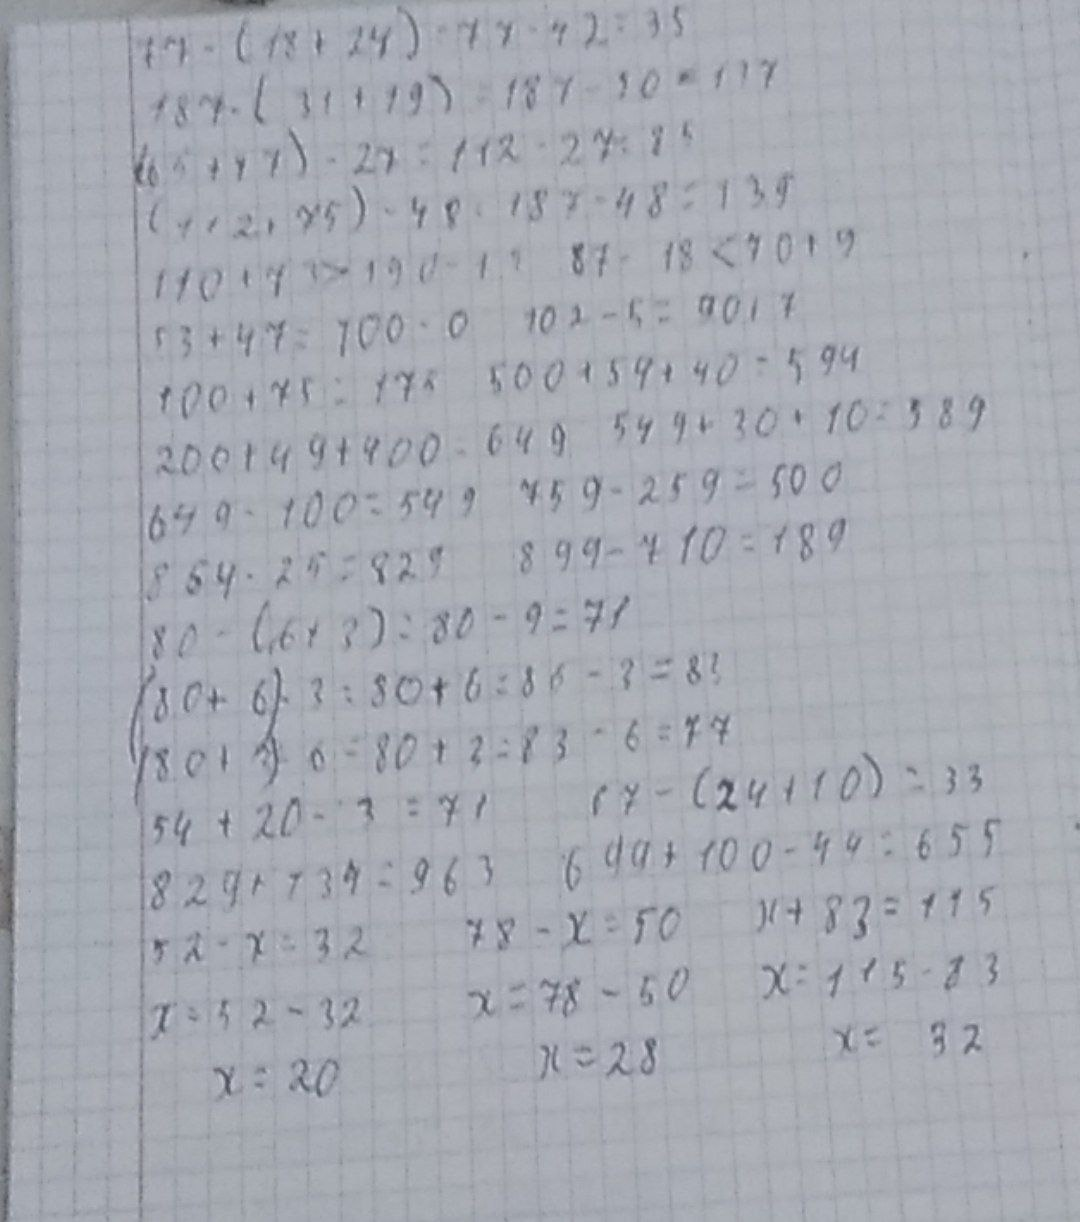 77-(18+24)=77-42=35
187-(31+19)=187-50=137
(65+47)-27=112-27=85
(112+75)-48=187-48=139
110+73>190-1? 87-18<70+9
53+47=100-0 102-5=90+7
100+75=175 500+54+40=594
200+49+400=649 549+30+10=589
649-100=549 759-259=500
854-25=829 899-710=189
80-(6+3)=80-9=71
(80+6)-3=80+6=86-3=83
(80+3)-6=80+3=83-6=77
54+20-3=71 67-(24+10)=33
829+134=963 699+100-44=655
52-x=32 78-x=50 x+83=115
x=52-32 x=78-50 x=115-83
x=20 x=28 x= 32